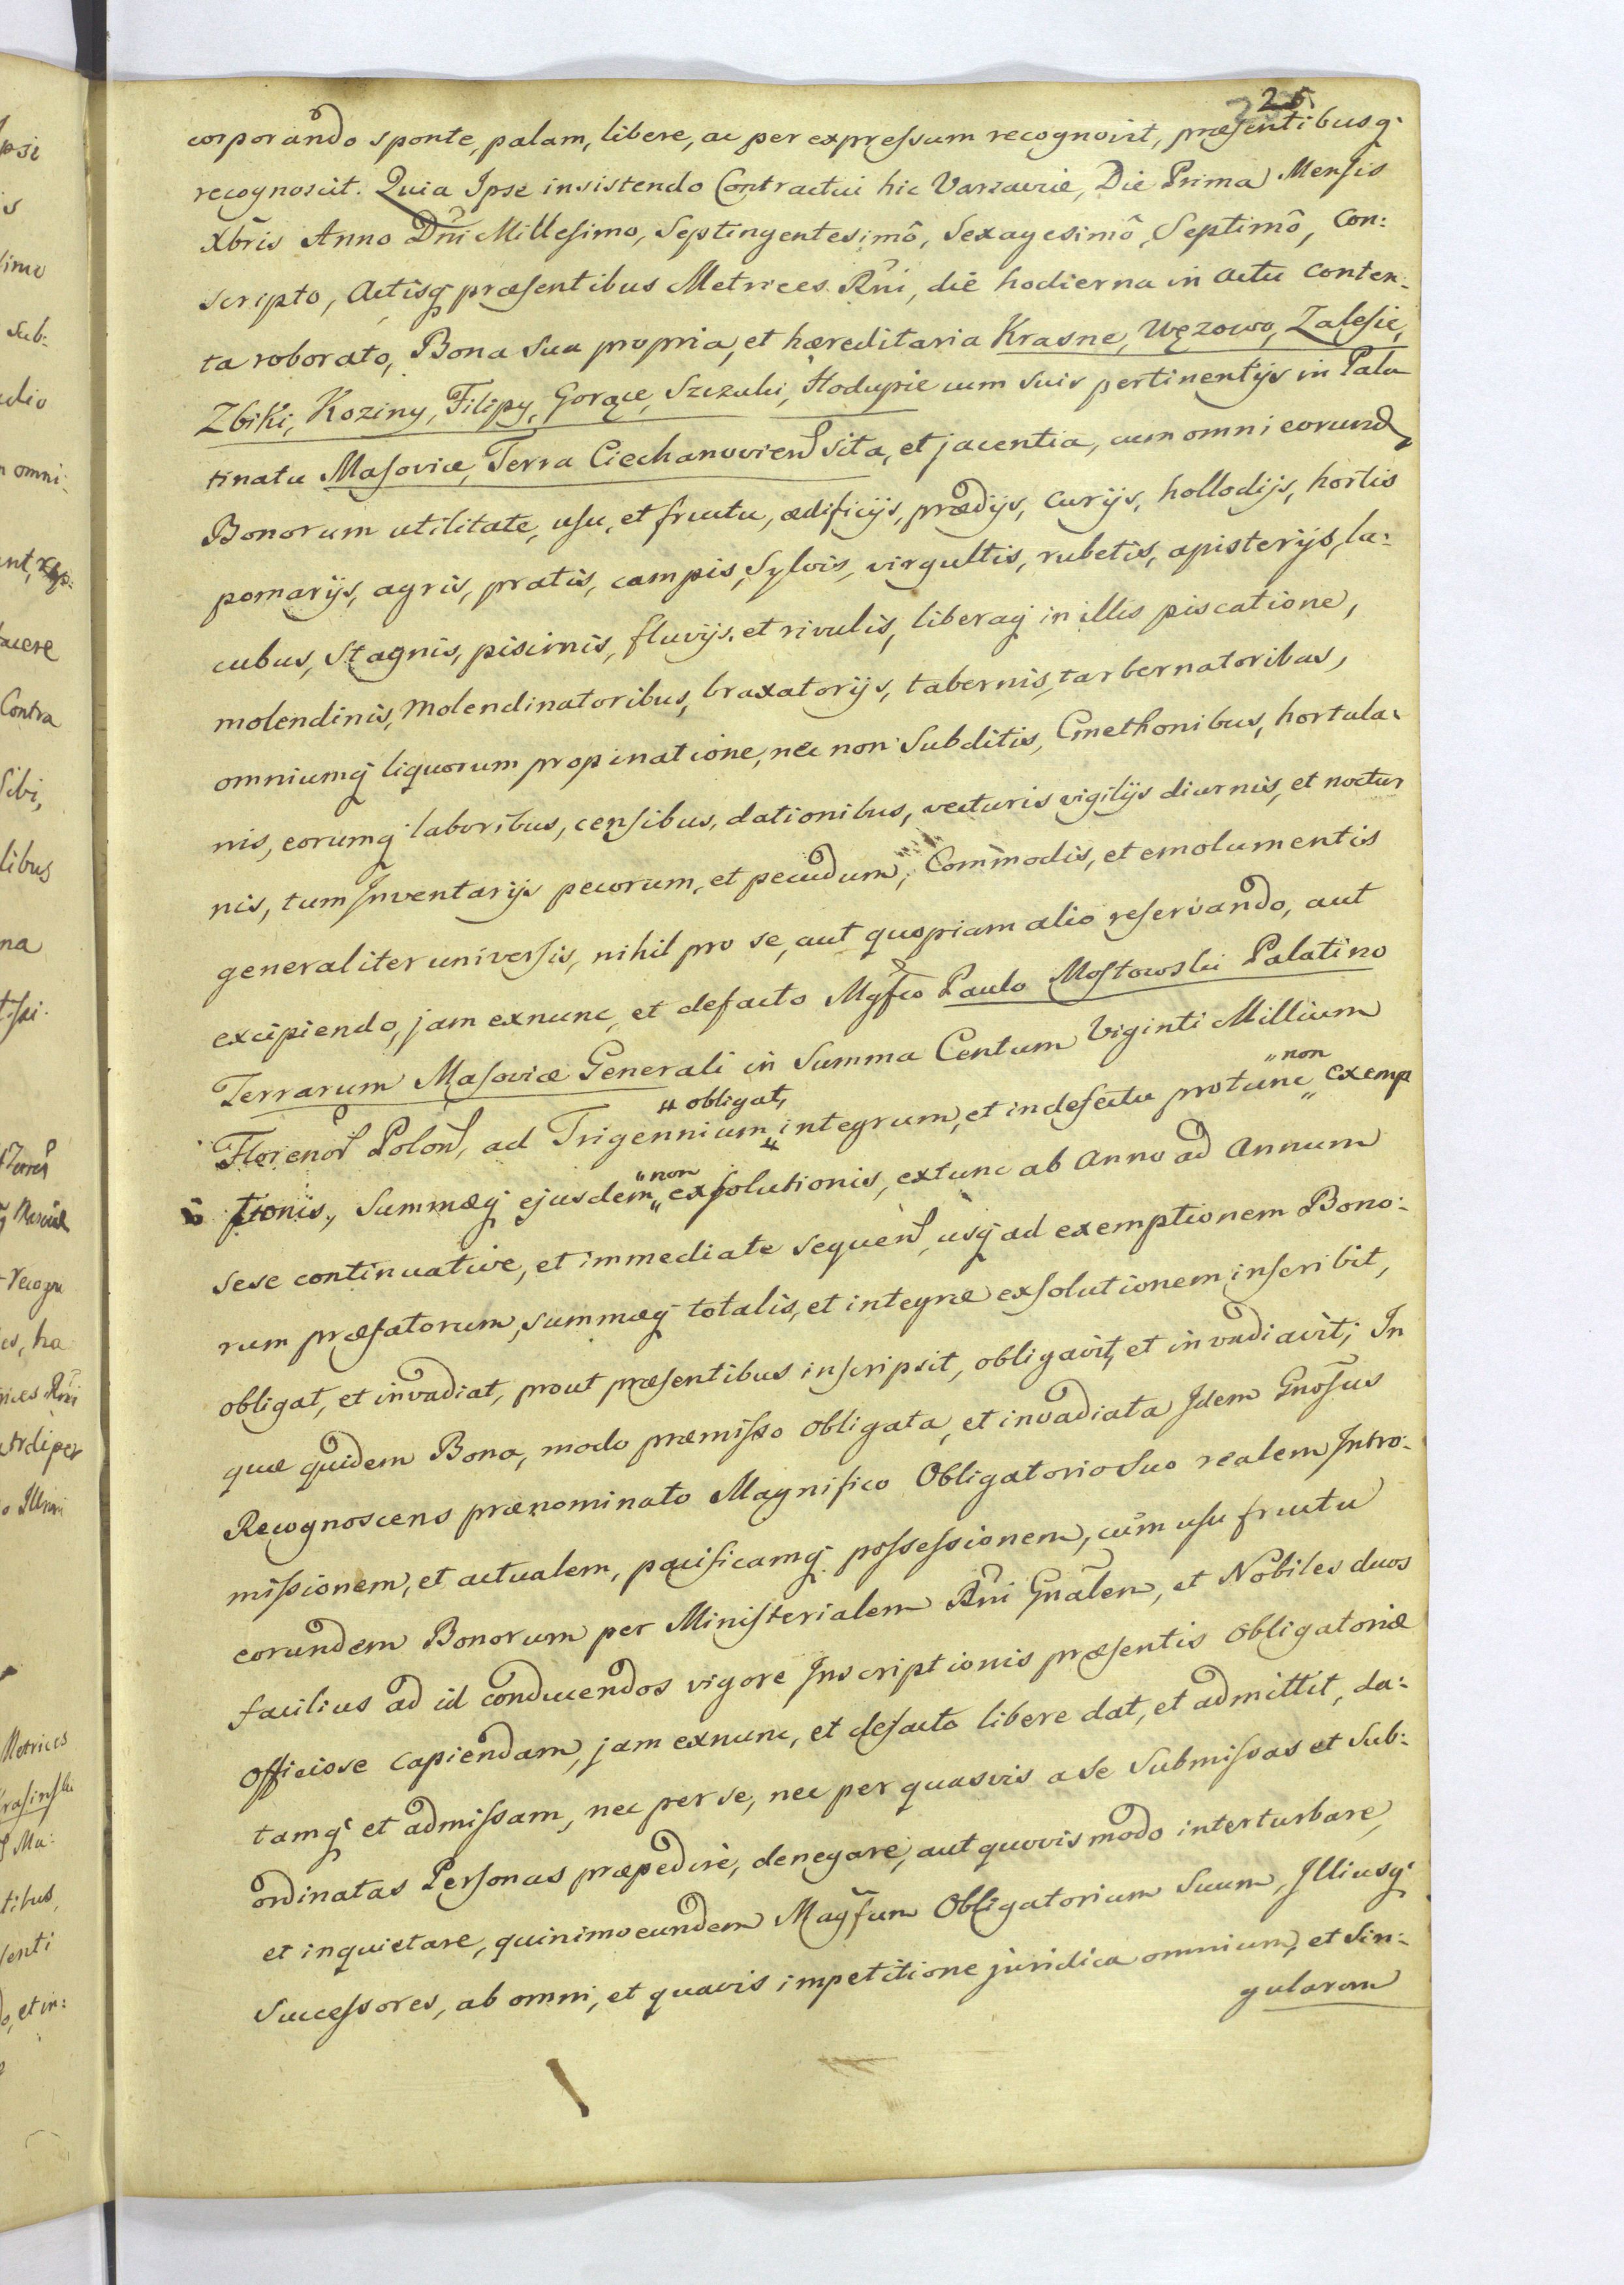 25
corporando sponte, palam, libere, ac per expressum recognovit, præsentibusq
recognoscit. Quia Ipse insistendo Contractui hic Varsaviæ, Die Prima Mensis
Xbris Anno Dni Millesimo, Septingentesimô, Sexagesimô, Septimô, Con:
scripto, Actisq præsentibus Metrices Rni, die hodierna in actu conten:
ta roborato, Bona sua propria, et hæreditaria Krasne, Węzowo, Zalesie,
Zbiki, Koziny, Filipy, Gorące, Szczuki, Hodupie cum suis pertinentijs in Pala
tinatu Masoviæ, Terra Ciechanovien sita, et jacentia, cum omni eorund
Bonorum utilitate, usu, et fructu, ædificijs, prædijs, curijs, hollodijs, hortis
pomarijs, agris, pratis, campis, Sylvis, virgultis, rubetis, apisterijs, la:
cubus, Stagnis, piscinis, fluvijs, et rivulis, liberaq in illis piscatione,
molendinis, Molendinatoribus, braxatorijs, tabernis, tarbernatoribus,
omniumq liquorum propinatione, nec non Subditis, Cmethonibus, hortula:
nis, eorumq laboribus, censibus, dationibus, vecturis vigilijs diurnis, et noctur
nis, tum Inventarijs pecorum, et pecudum, Commodis, et emolumentis
generaliter universis, nihil pro se, aut quopiam alio reservando, aut
excipiendo, jam exnunc, et defacto Mgfco Paulo Mostowski Palatino
Terrarum Masoviæ Generali in Summa Centum Viginti Millium
Florenor Polon, ad Trigennium # obligat, integrum, et indefectu protunc "non" exemp
tionis, Summæq ejusdem "non" exsolutionis, extunc ab Anno ad Annum
sese continuative, et immediate sequen, usq ad exemptionem Bono:
rum præfatorum, summæq totalis, et integræ exsolutionem inscribit,
obligat, et invadiat, prout præsentibus inscripsit, obligavit, et invadiavit; In
quæ quidem Bona, modo præmisso obligata, et invadiata Idem Gnosus
Recognoscens prænominato Magnifico Obligatorio Suo realem Intro:
missionem, et actualem, pacificamq possessionem, cum usu fructu
eorundem Bonorum per Ministerialem Rni Gnalem, et Nobiles duos
facilius ad id conducendos vigore Inscriptionis præsentis Obligatoriæ
officiose capiendam, jam exnunc, et defacto libere dat, et admittit, da:
tamq et admissam, nec per se, nec per quasvis a se Submissas et Sub:
ordinatas Personas præpedire, denegare, aut quovis modo interturbare,
et inquietare, quinimo eundem Magfcum Obligatorium Suum, Illiusq
Successores, ab omni, et quavis impetitione juridica omnium, et Sin:
gularum